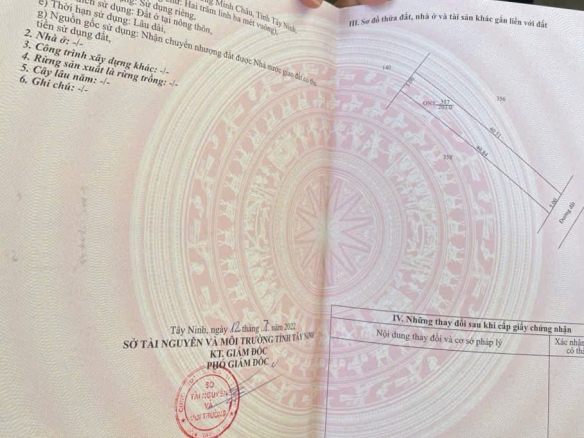 Minh Châu, Tỉnh Tây Ninh.
Hai trăm linh ba mét vuông),
sử dụng: Sử dụng riêng,
đích sử dụng: Đất ở tại nông thôn,
e) Thời hạn sử dụng: Lâu dài,
g) Nguồn gốc sử dụng: Nhận chuyển nhượng đất được Nhà nước giao đất có thu
tiền sử dụng đất.
2. Nhà ở: -/-
3. Công trình xây dựng khác: -/-
4. Rừng sản xuất là rừng trồng: -/-
5. Cây lâu năm: -/-
6. Ghi chú: -/-
Tây Ninh, ngày 12 tháng 7 năm 2022
SỞ TÀI NGUYÊN VÀ MÔI TRƯỜNG TỈNH TÂY NINH
KT. GIÁM ĐỐC
PHÓ GIÁM ĐỐC
SỞ
TÀI NGUYÊN
VÀ
MÔI TRƯỜNG
III. Sơ đồ thửa đất, nhà ở và tài sản khác gắn liền với đất
140
5.00
ONT 357
203.0
356
40.52
40.64
358
5.00
Đường đất
IV. Những thay đổi sau khi cấp giấy chứng nhận
Nội dung thay đổi và cơ sở pháp lý
Xác nhận
có th